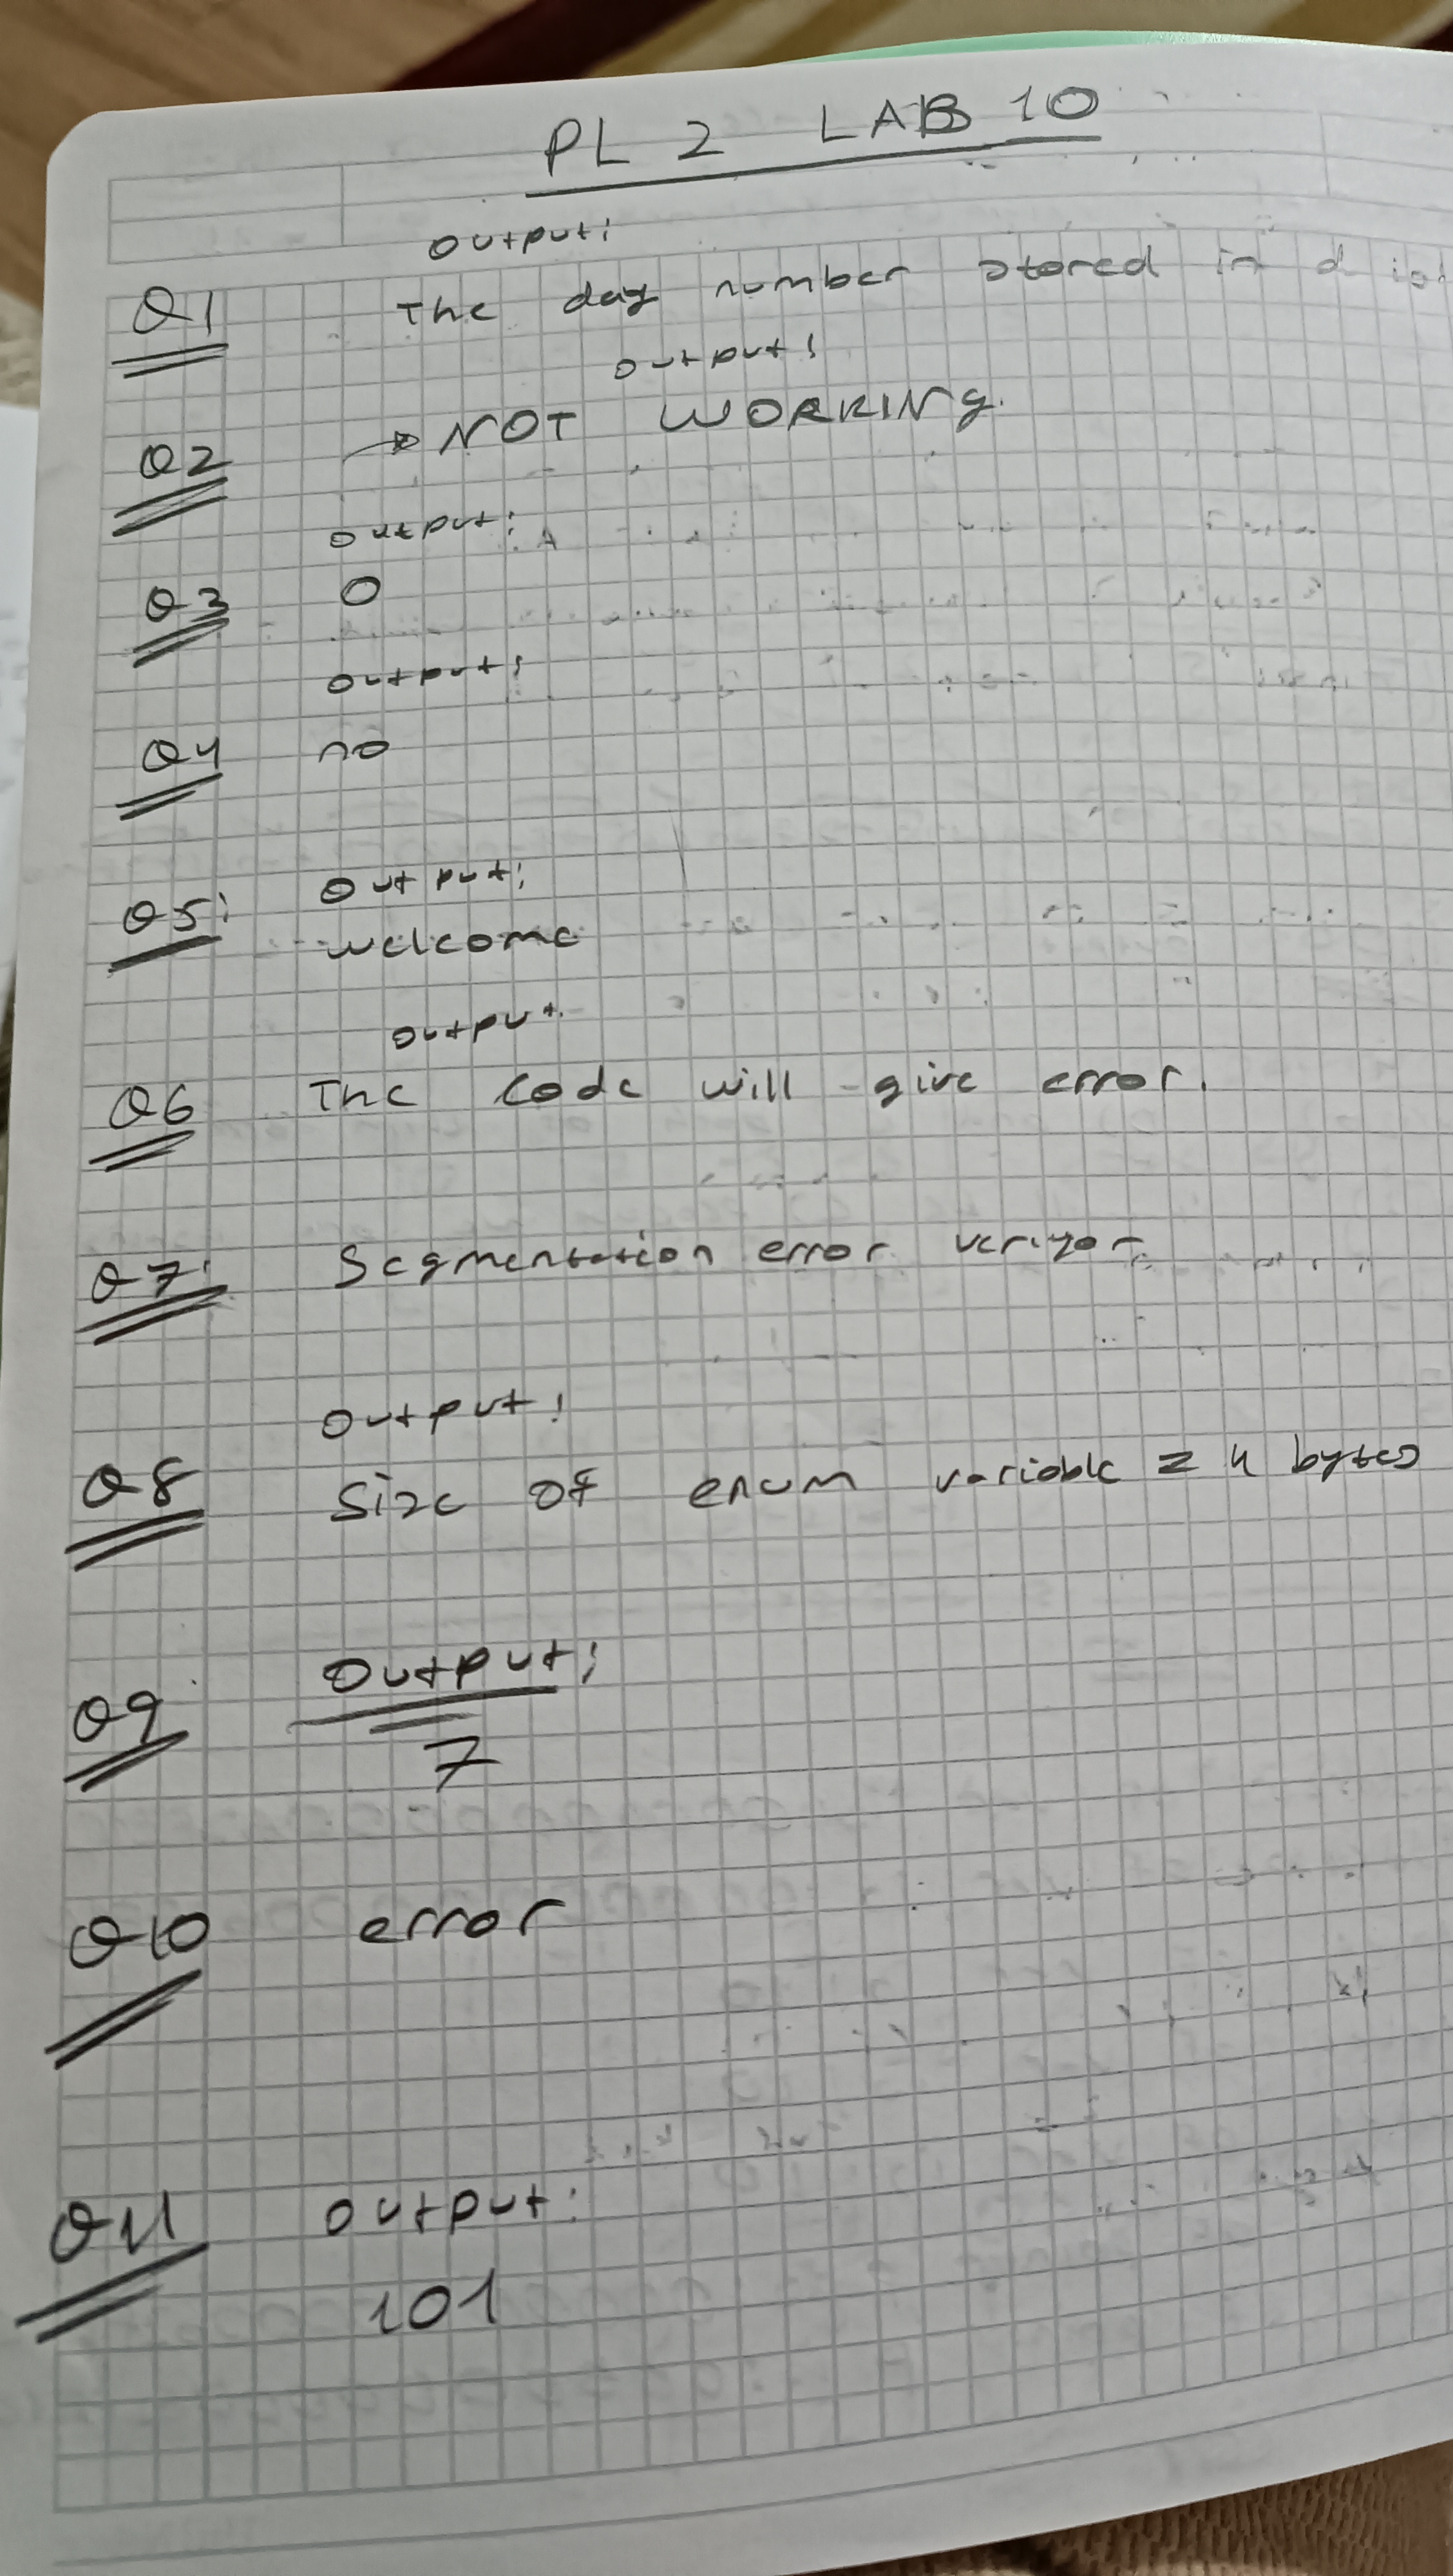 PL 2 LAB 10
output:
Q1 The day number stored in d
output:
Q2 → NOT WORKING.
output:
Q3 0
output:
Q4 no
output:
Q5: welcome
output
Q6 The code will give error.
Q7: Segmentation error veriyor
output:
Q8 Size of enum variable = 4 bytes
output:
Q9 7
Q10 error
Q11 output:
101